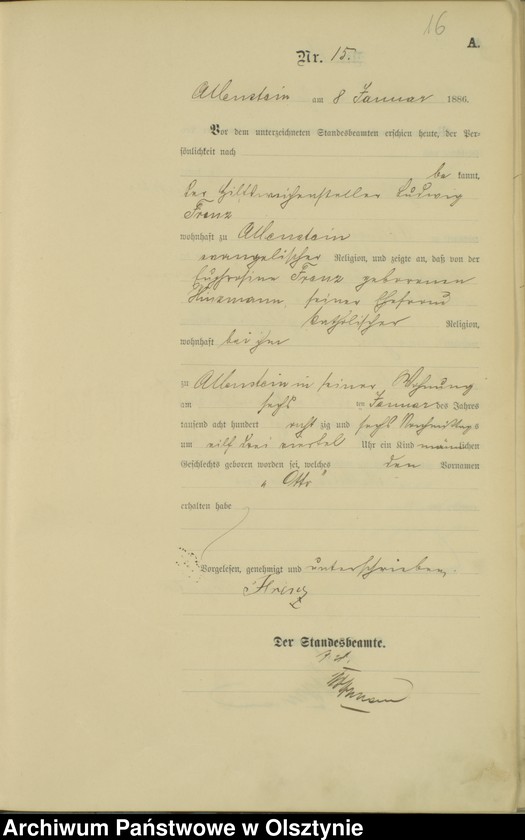 16
A.
Nr. 15.
Allenstein am 8 Januar 1886.
Vor dem unterzeichneten Standesbeamten erschien heute, der Per-
sönlichkeit nach
be kannt,
der Hilfsweichensteller Ludwig
Frenz
wohnhaft zu Allenstein
evangelischer Religion, und zeigte an, daß von der
Euphrosine Frenz geborenen
seiner Ehefrau
katholischer Religion,
wohnhaft bei ihm
zu Allenstein in seiner Wohnung
am sechs ten Januar des Jahres
tausend acht hundert acht zig und sechs Vormittags
um elf drei viertel Uhr ein Kind männlichen
Geschlechts geboren worden sei, welches den Vornamen
„Otto"
erhalten habe
Vorgelesen, genehmigt und unterschrieben.
Frenz
Der Standesbeamte.
Archiwum Państwowe w Olsztynie